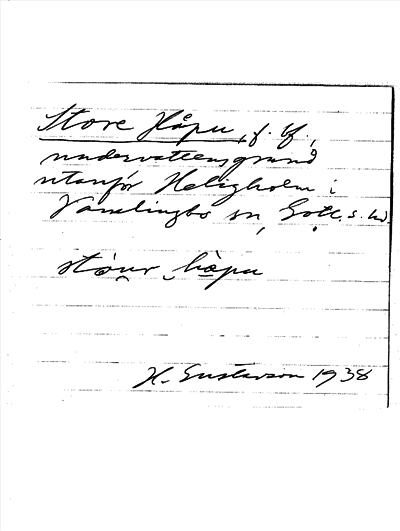 Store Håpu, f. bf.,
undervattensgrund
utanför Heligholm i
Vamlingbo sn, Gotl. s. hd.
stōur hāpu
H. Gustavson 1938